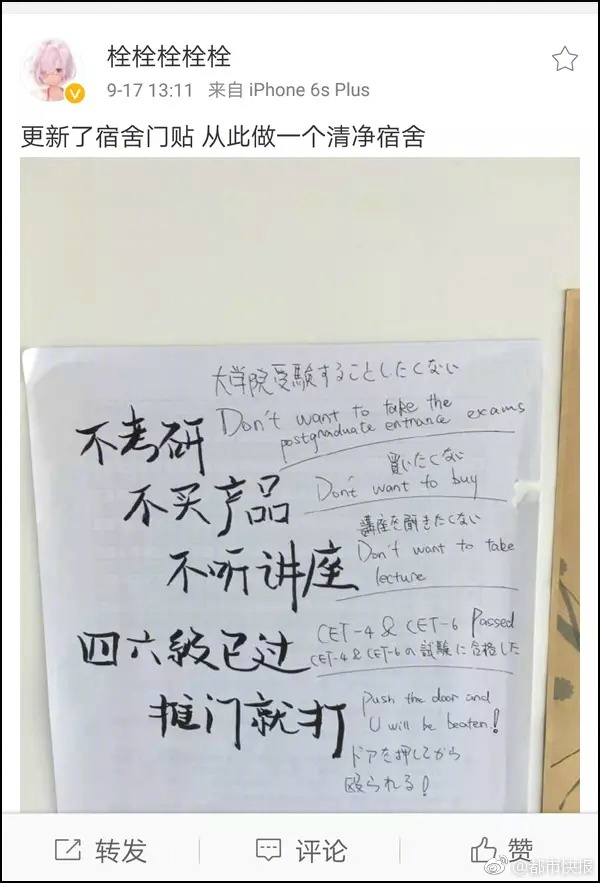 栓栓栓栓栓
9-17 13:11 来自 iPhone 6s Plus
更新了宿舍门贴 从此做一个清净宿舍
大学院受験することしたくない
不考研 Don't want to take the
postgraduate entrance exams
買いたくない
不买产品 Don't want to buy
講座を聞きたくない
不听讲座 Don't want to take
lecture
四六级已过 CET-4 & CET-6 Passed
CET-4 & CET-6の試験に合格した
推门就打 Push the door and
U will be beaten!
ドアを押してから
殴られる!
转发 评论 赞
@都市快报